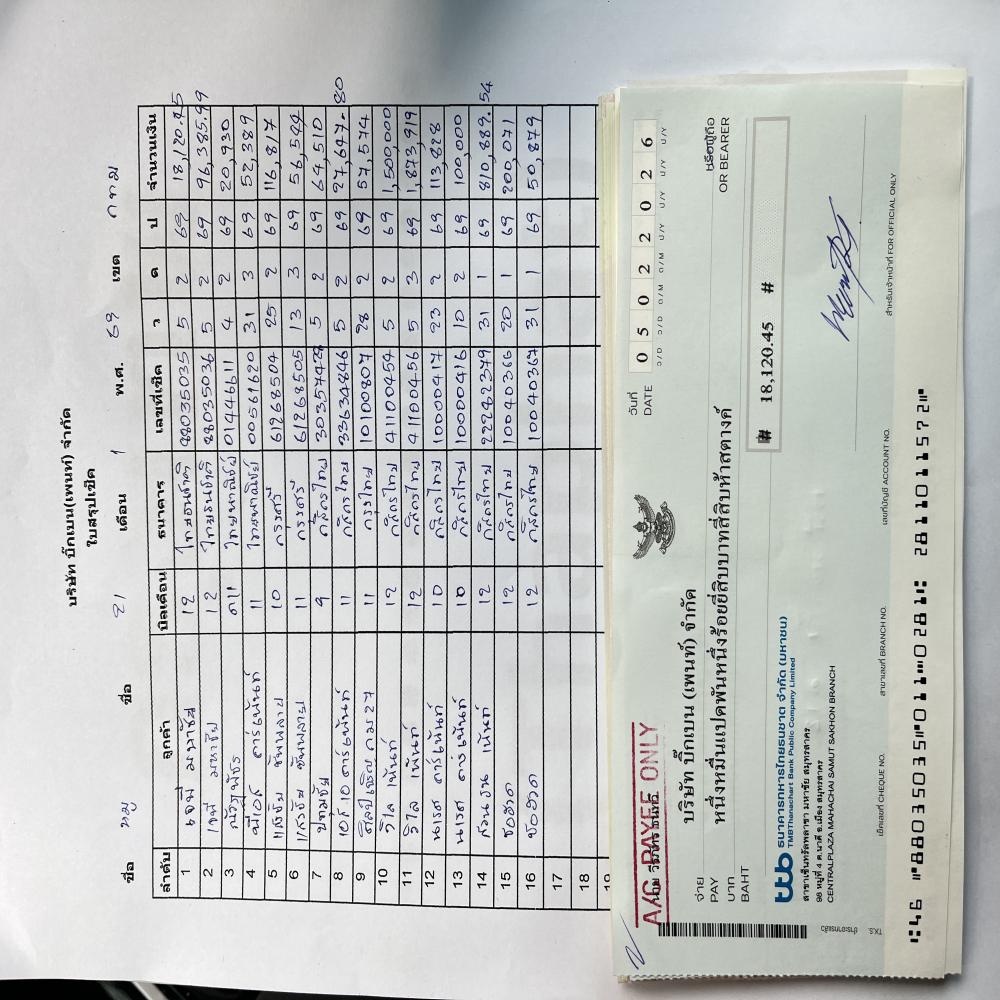 บริษัท บิ๊กเบน(เพนท์) จำกัด
ใบสรุปเช็ค
ชื่อ หมู ชื่อ 21 เดือน 1 พ.ศ. 69 เขต กทม
ลำดับ ลูกค้า บิลเดือน ธนาคาร เลขที่เช็ค ว ค ป จำนวนเงิน
1 เจมี่ มหาชัย 12 ไทยธนชาติ 88035035 5 2 69 18,120.45
2 เจมี่ มหาชัย 12 ไทยธนชาติ 88035036 5 2 69 96,385.99
3 ณัฐพัชร 11 ไทยพาณิชย์ 01446611 4 2 69 20,930
4 คาร์เพ้นท์ 11 ไทยพาณิชย์ 00561620 31 3 69 52,389
5 10 กรุงศรี 61268504 25 2 69 116,817
6 11 กรุงศรี 61268505 13 3 69 56,544
7 9 กสิกรไทย 5 2 69 64,510
8 คาร์เพ้นท์ 11 กสิกรไทย 33634846 5 2 69 27,647.80
9 11 กรุงไทย 10100807 28 2 69 57,574
10 วิไล เพ้นท์ 12 กสิกรไทย 41100454 5 2 69 1,500,000
11 วิไล เพ้นท์ 12 กสิกรไทย 41100456 5 3 69 1,873,919
12 นเรศ คาร์เพ้นท์ 10 กสิกรไทย 10000417 23 2 69 113,828
13 นเรศ คาร์เพ้นท์ 10 กสิกรไทย 10000416 10 2 69 100,000
14 เพ้นท์ 12 กสิกรไทย 22242379 31 1 69 810,889.54
15 12 กสิกรไทย 10040366 20 1 69 200,071
16 12 กสิกรไทย 10040367 31 1 69 50,879
17
18
19
A/C PAYEE ONLY
วันที่
DATE 0 5 0 2 2 0 2 6
ว/D ว/D ด/M ด/M ป/Y ป/Y ป/Y ป/Y
จ่าย
PAY บริษัท บิ๊กเบน (เพนท์) จำกัด
หรือผู้ถือ
OR BEARER
บาท
BAHT หนึ่งหมื่นแปดพันหนึ่งร้อยยี่สิบบาทสี่สิบห้าสตางค์
# 18,120.45 #
ttb ธนาคารทหารไทยธนชาต จำกัด (มหาชน)
TMBThanachart Bank Public Company Limited
สาขาเซ็นทรัลพลาซา มหาชัย สมุทรสาคร
98 หมู่ที่ 4 ต.นาดี อ.เมือง สมุทรสาคร
CENTRALPLAZA MAHACHAI SAMUT SAKHON BRANCH
ชำระอากรแล้ว
T.K.S.
เช็คเลขที่ CHEQUE NO. สาขาเลขที่ BRANCH NO. เลขที่บัญชี ACCOUNT NO. สำหรับเจ้าหน้าที่ FOR OFFICIAL ONLY
⑆46 ⑈88035035⑈011⑉0281⑆ 2811011572⑈